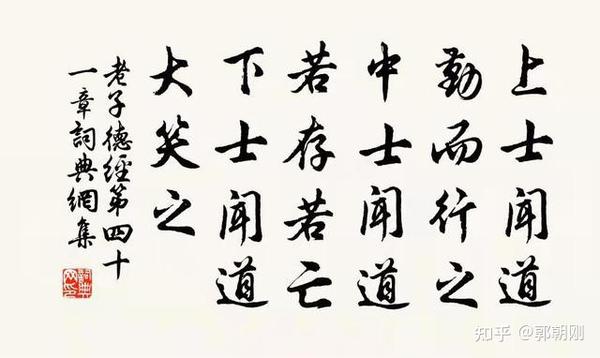 上士闻道
勤而行之
中士闻道
若存若亡
下士闻道
大笑之
老子德經第四十
一章詞典網集
知乎 @郭朝刚